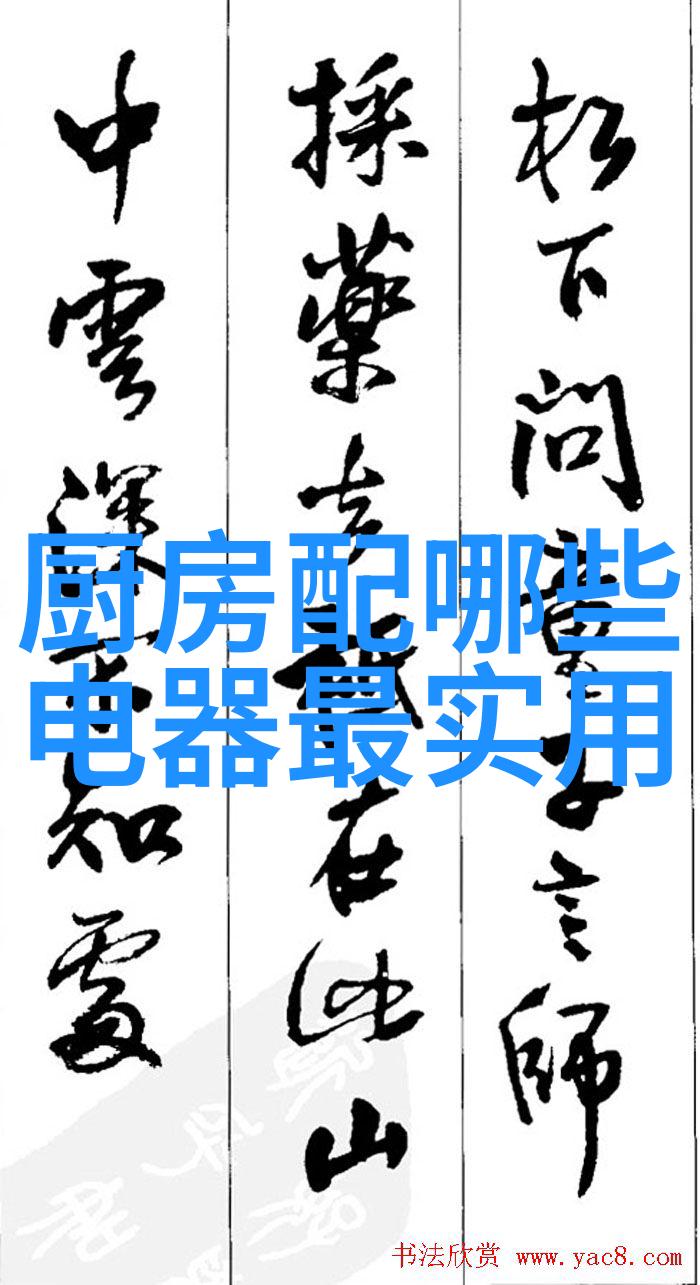 松下问童子言師
採藥去祇在此山
中雲深不知處
厨房配哪些
电器最实用
书法欣赏 www.yac8.com